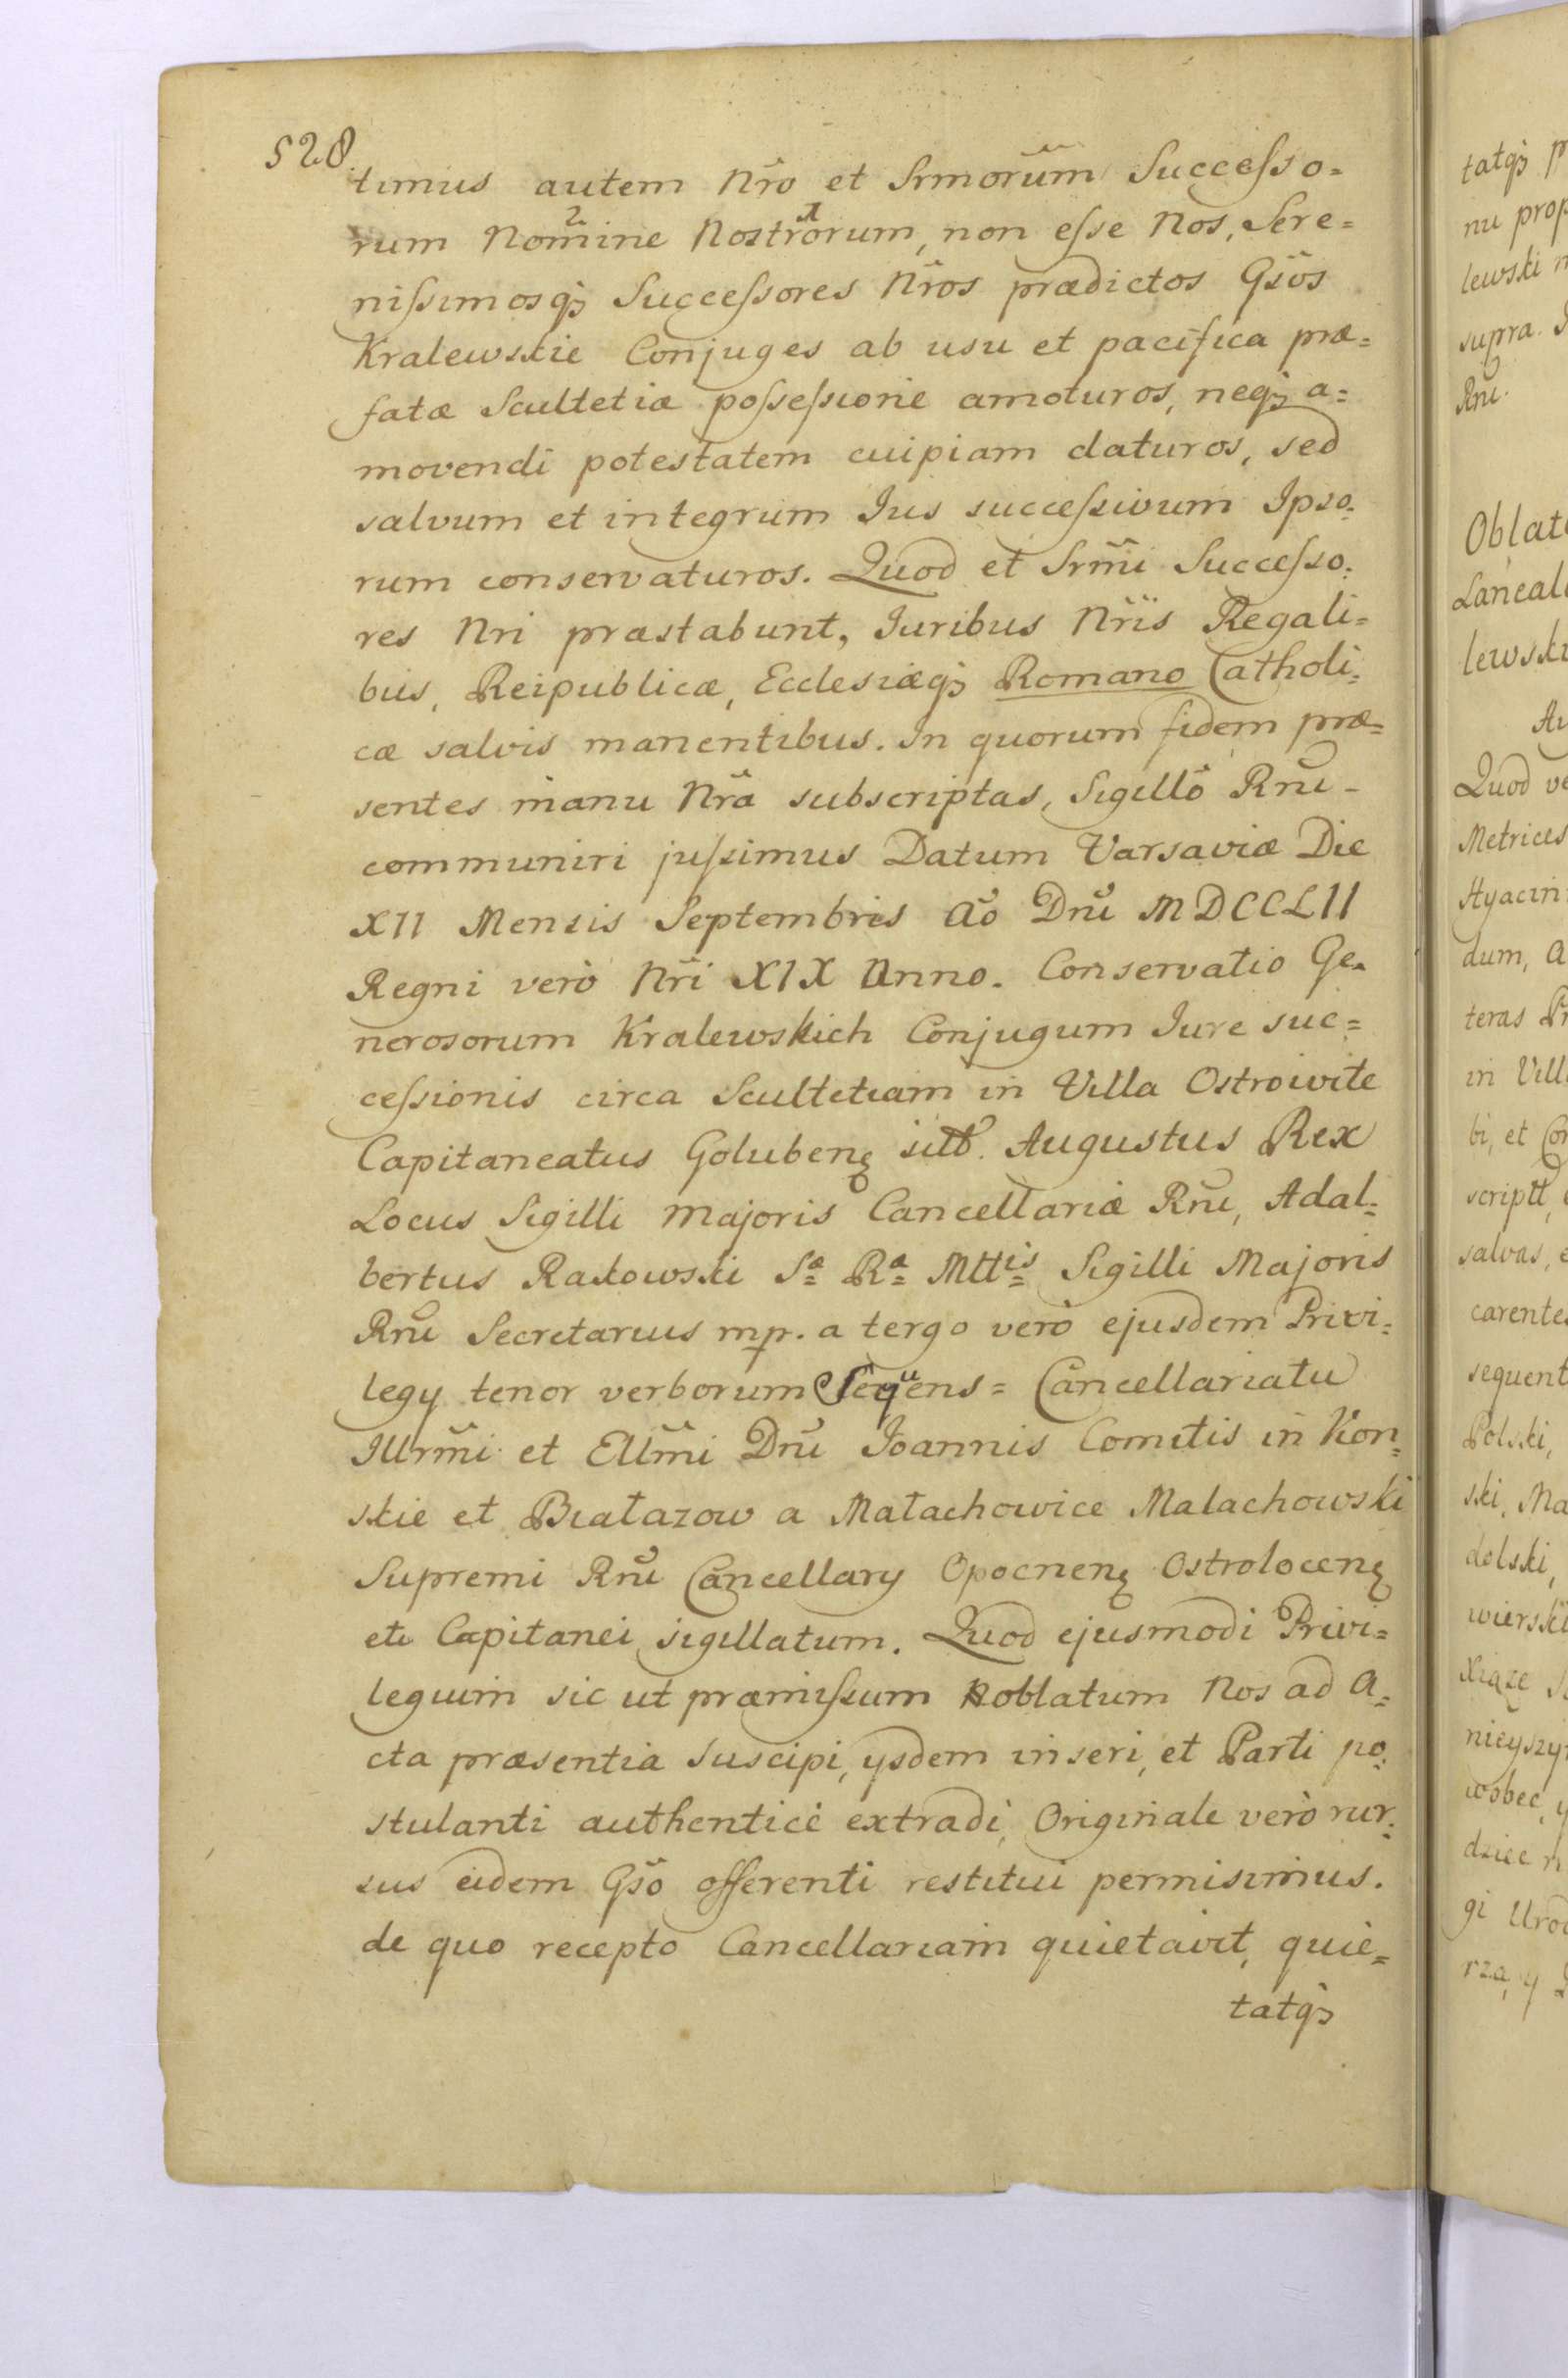 528.
timus autem Nr̃o et Srmorum̃ Successo=
rum Nomine Nostrorum, non esse Nos, Sere=
nissimosq; Successores Nr̃os prædictos Gs̃os
Kralewskie Conjuges ab usu et pacifica præ=
fatæ Scultetiæ possessione amoturos, neq; a=
movendi potestatem cuipiam daturos, sed
salvum et integrum Jus successivum Ipso=
rum conservaturos. Quod et Srm̃i Successo=
res Nri præstabunt, Juribus Nr̃is Regali=
bus, Reipublicæ, Ecclesiæq; Romano Catholi=
cæ salvis manentibus. In quorum fidem præ=
sentes manu Nr̃a subscriptas, Sigillo Rnĩ
communiri jussimus Datum Varsaviæ Die
XII Mensis Septembris Aõ Dnĩ MDCCLII
Regni verò Nr̃i XIX Anno. Conservatio Ge=
nerosorum Kralewskich Conjugum Jure suc=
cessionis circa Scultetiam in Villa Ostroivite
Capitaneatus Golubenȩ sitt. Augustus Rex
Locus Sigilli Majoris Cancellariæ Rnĩ, Adal=
bertus Rakowski Sæ Ræ Mttis Sigilli Majoris
Rnĩ Secretarius mp. a tergo verò ejusdem Privi=
legy tenor verborum Seqũens = Cancellariatu
Illrm̃i et Ellm̃i Dnĩ Joannis Comitis in Kon=
skie et Białazow a Małachowice Malachowski
Supremi Rnĩ Cancellary Opocnenȩ Ostrolocenȩ
etc Capitanei sigillatum. Quod ejusmodi Privi=
legium sic ut præmissum oblatum Nos ad A=
cta præsentia suscipi, ysdem inseri, et Parti po=
stulanti authenticè extradi, Originale verò rur=
sus eidem Gs̃o offerenti restitui permisimus.
de quo recepto Cancellariam quietavit, quie=
tatq;
tatq; p
nu prop
lewski
supra.
Rnĩ.
Oblat
Lanceal
lewski
Quod ve
Metrices
Hyacin
dum, a
teras Pr
in Vill
bi, et Con
scriptt,
salvas, e
carente
sequent
Polski,
ski, Ma
dolski,
wierski
Xiąże
nieyszy
wobec, y
dziec
gi Urod
rza, y